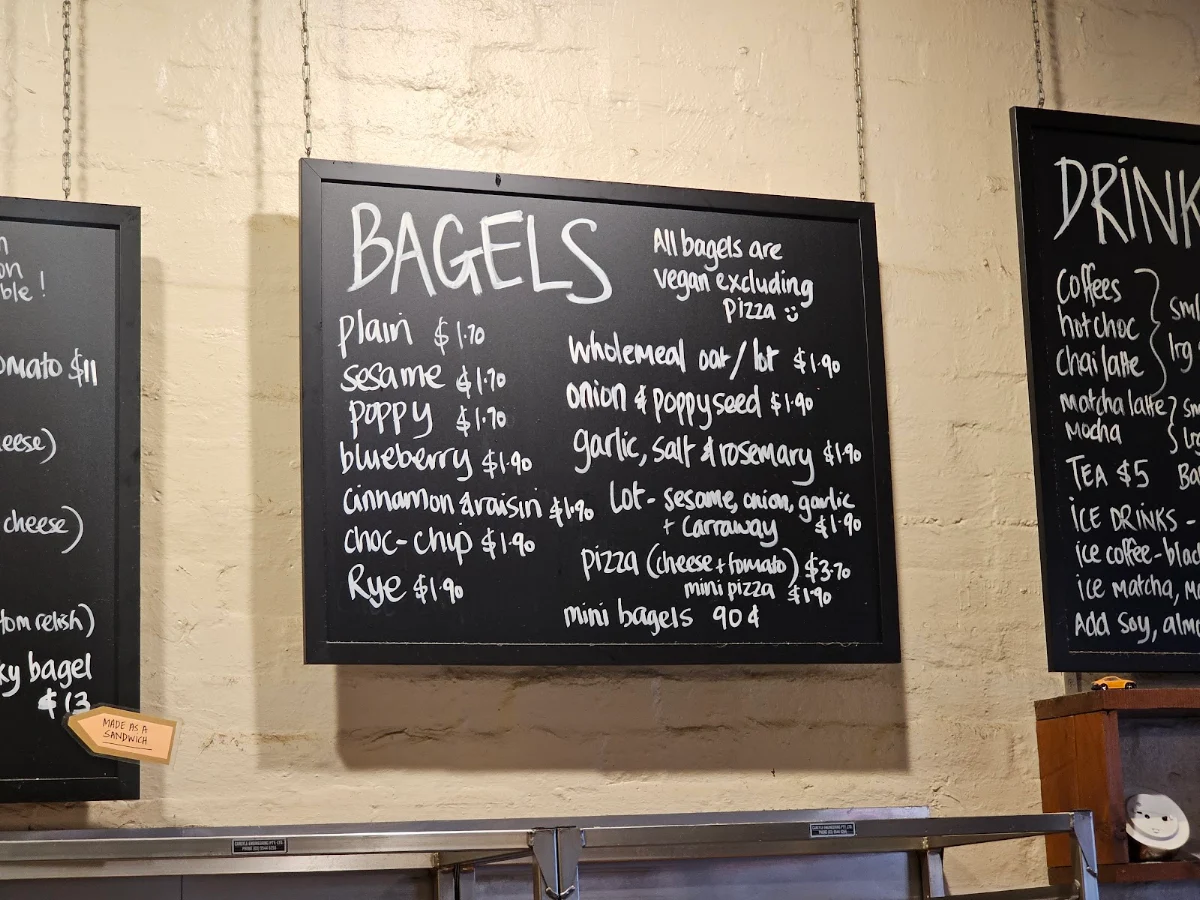 ble!
$11
cheese)
ky bagel
$13
MADE AS A
SANDWICH
BAGELS
All bagels are
vegan excluding
pizza
plain $1.70
sesame $1.70
poppy $1.70
blueberry $1.90
cinnamon & raisin $1.90
choc-chip $1.90
Rye $1.90
wholemeal oat/lot $1.90
onion & poppyseed $1.90
garlic, salt & rosemary $1.90
Lot - sesame, onion, garlic
+ carraway $1.90
pizza (cheese + tomato) $3.70
mini pizza $1.90
mini bagels 90¢
DRINK
Coffees
hot choc
chai latte
sml
lrg
matcha latte
mocha
TEA $5
ICE DRINKS -
ice coffee - black
ice matcha,
Add Soy,